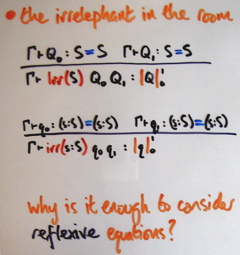 • the irrelephant in the room
Γ ⊢ Q₀ : S = S   Γ ⊢ Q₁ : S = S
Γ ⊢ Irr(S) Q₀ Q₁ : |Q|₀¹
Γ ⊢ q₀ : (s:S) = (s:S)   Γ ⊢ q₁ : (s:S) = (s:S)
Γ ⊢ irr(s:S) q₀ q₁ : |q|₀¹
why is it enough to consider
reflexive equations?